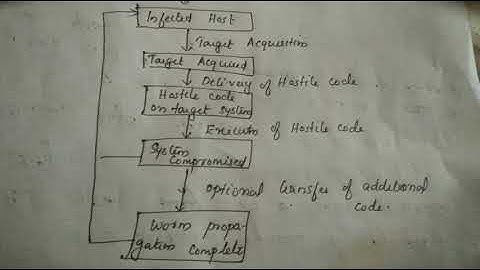 Infected Host
Target Acquisition
Target Acquired
Delivery of Hostile code
Hostile code
on target system
Execution of Hostile code
System
Compromised
optional transfer of additional
code.
Worm propa-
gation complete